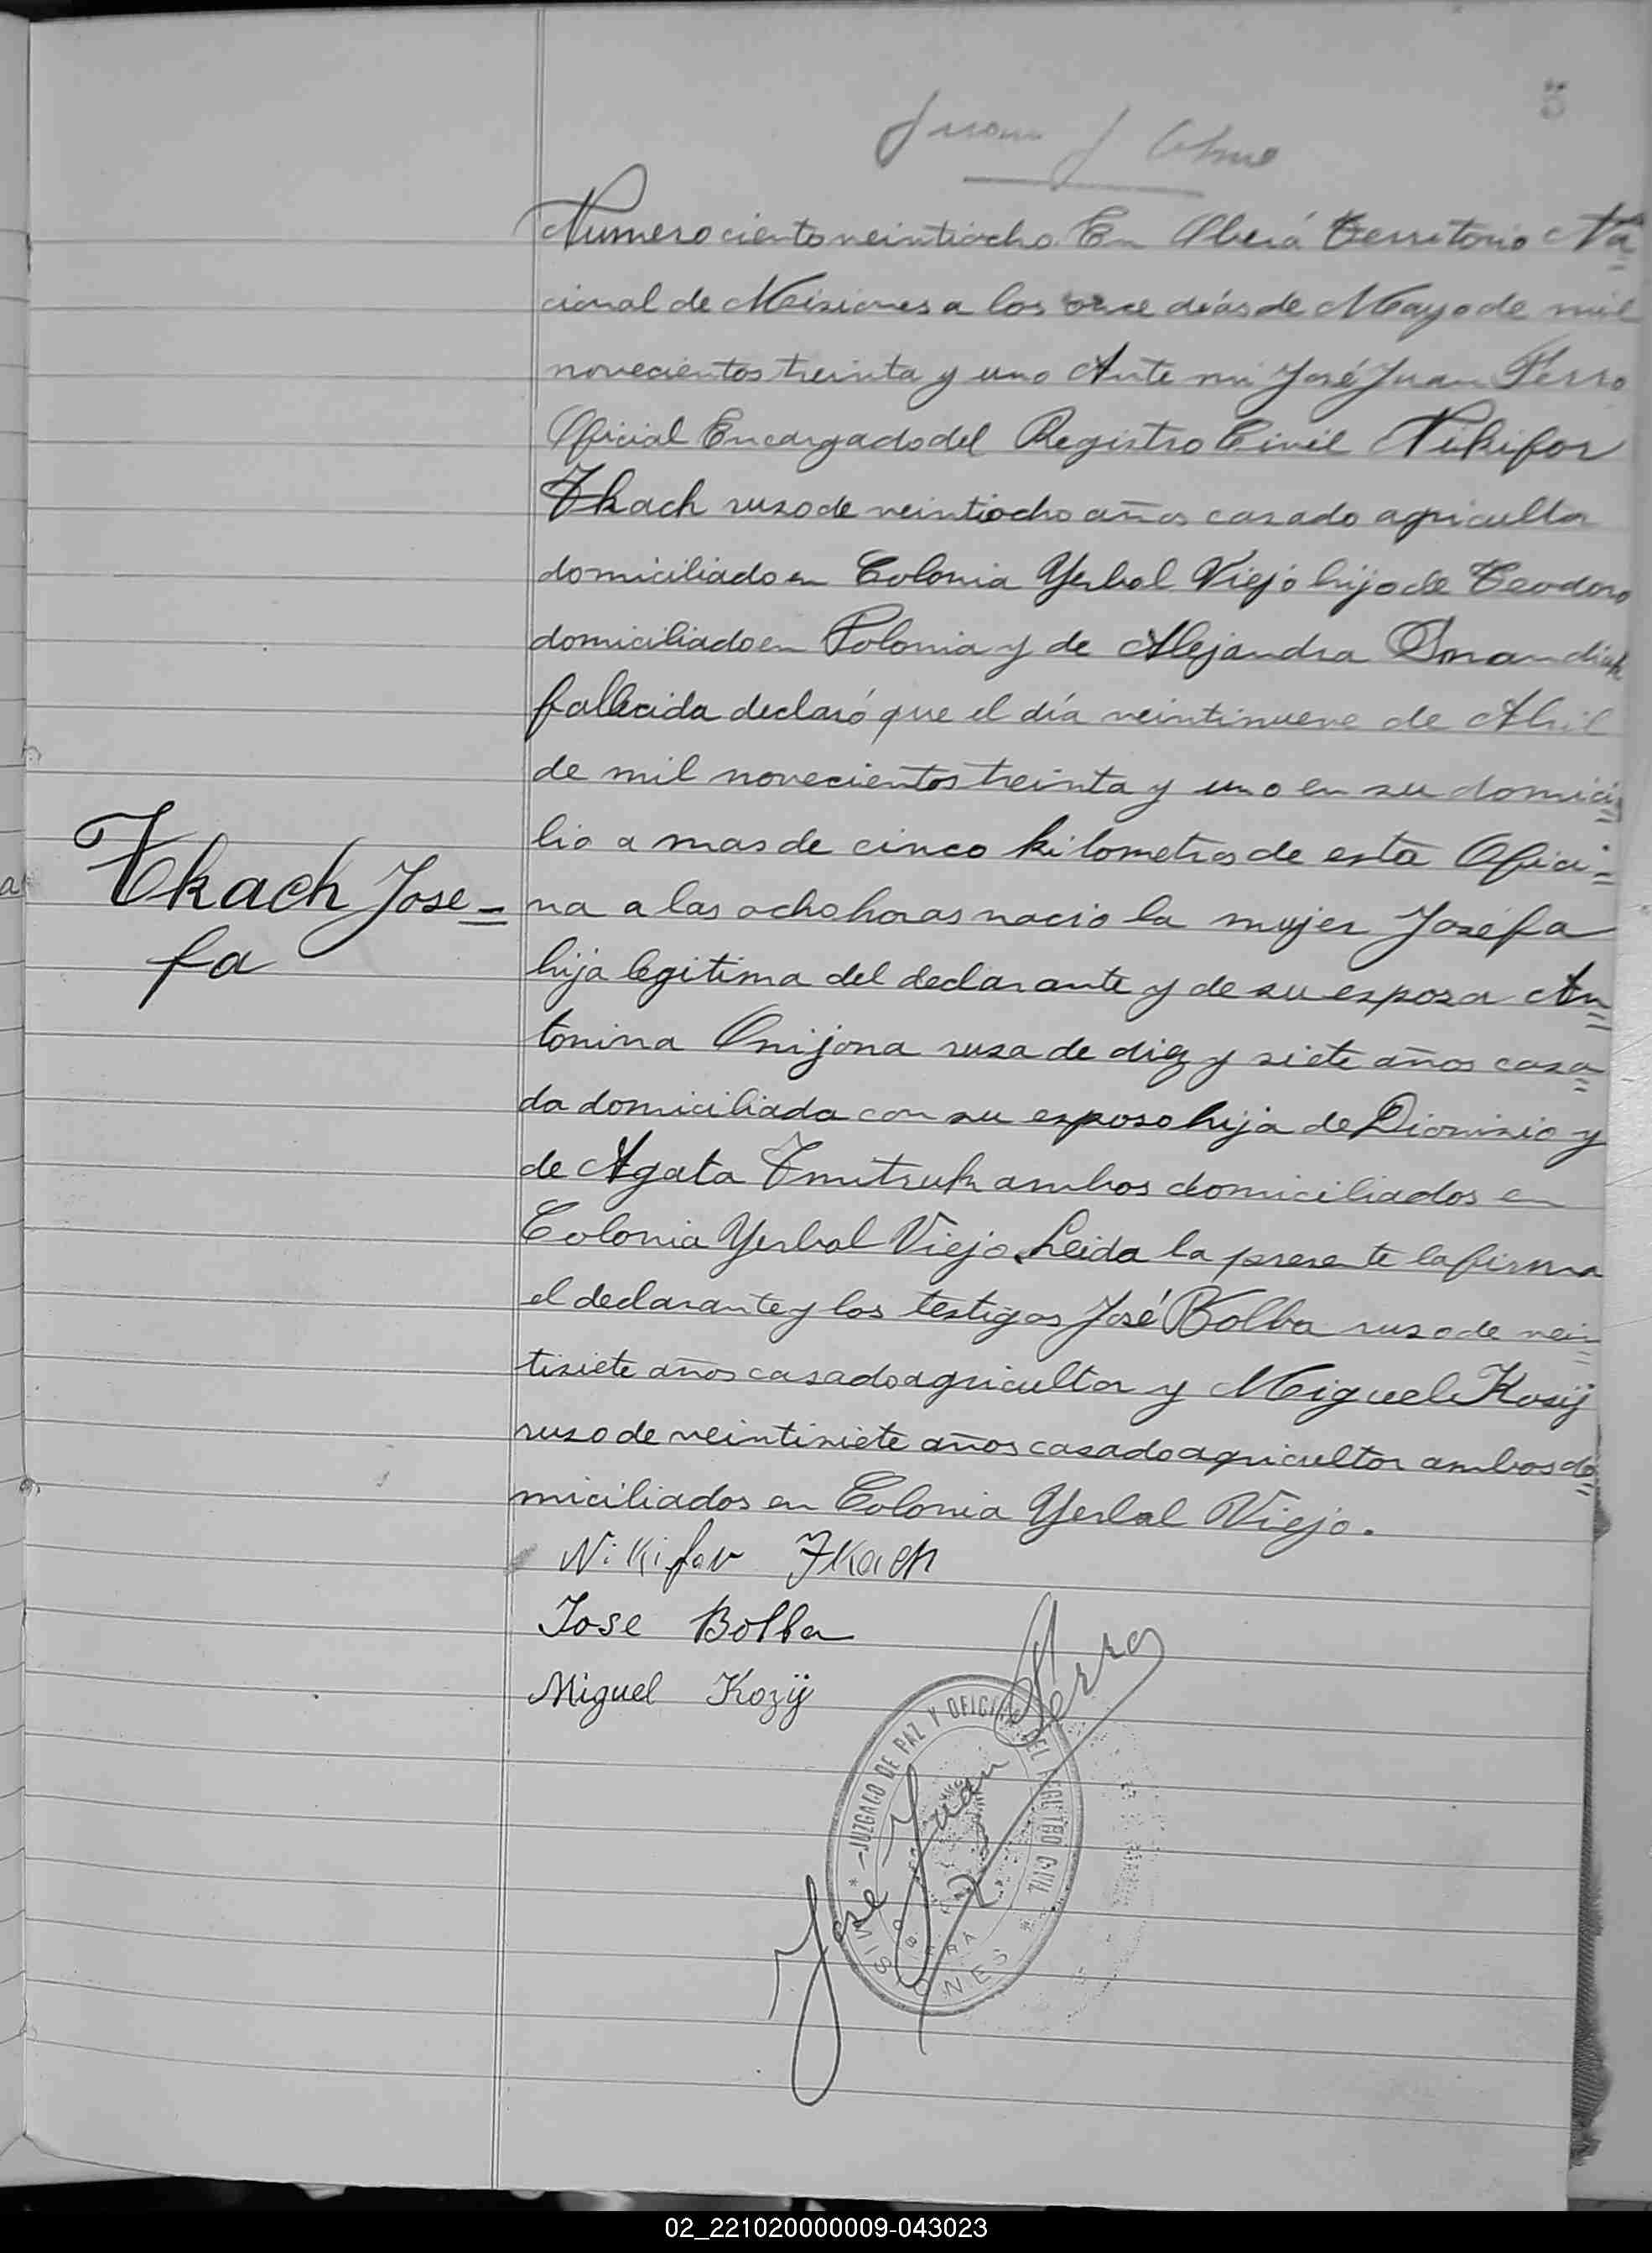 5
Juan J
Numero ciento veintiocho. En Oberá Territorio Na
cional de Misiones a los once dias de Mayo de mil
novecientos treinta y uno Ante mi José Juan Perro
Oficial Encargado del Registro Civil Nikifor
Tkach ruso de veintiocho años casado agricultor
domiciliado en Colonia Yerbal Viejo hijo de Teodoro
domiciliado en Polonia y de Alejandra
fallecida declaró que el día veintinueve de Abril
de mil novecientos treinta y uno en su domici
lio a mas de cinco kilometros de esta Ofici-
Tkach Jose-
fa
na a las ocho horas nacio la mujer Joséfa
hija legitima del declarante y de su esposa An
tonina Onijona rusa de diez y siete años casa
da domiciliada con su esposo hija de Dionisio y
de Agata Tmitruk ambos domiciliados en
Colonia Yerbal Viejo. Leida la presente la firma
el declarante y los testigos José Bolba ruso de vein
tisiete años casado agricultor y Miguel Kozij
ruso de veintisiete años casado agricultor ambos do
miciliados en Colonia Yerbal Viejo.
Nikifor Tkach
Jose Bolba
Miguel Kozij
Jose Juan Perro
JUZGADO DE PAZ Y OFICINA DEL REGISTRO CIVIL
OBERA
MISIONES
02_221020000009-043023